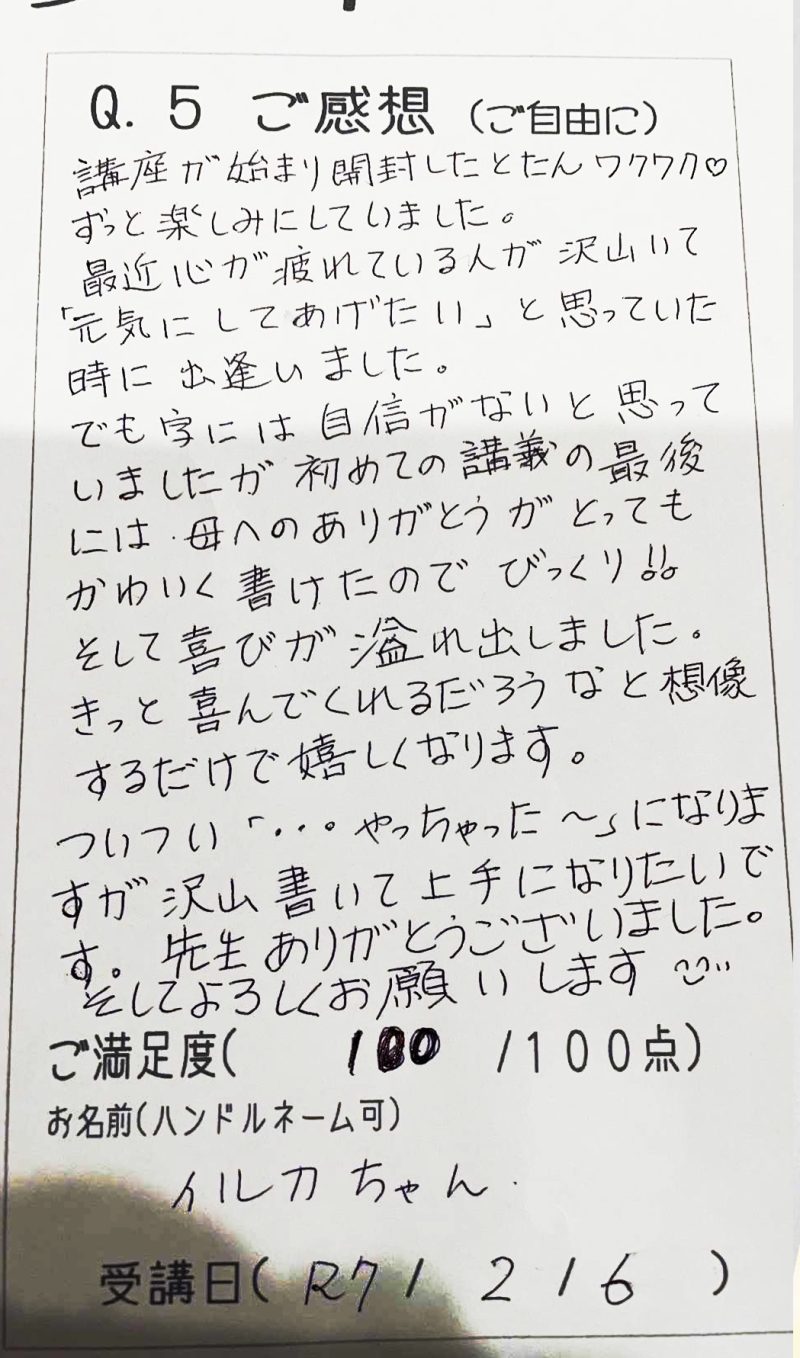 Q.5 ご感想(ご自由に)
講座が始まり開封したとたんワクワク♡
ずっと楽しみにしていました。
最近心が疲れている人が沢山いて
「元気にしてあげたい」と思っていた
時に出逢いました。
でも字には自信がないと思って
いましたが初めての講義の最後
には母へのありがとうがとっても
かわいく書けたのでびっくり!!
そして喜びが溢れ出しました。
きっと喜んでくれるだろうなと想像
するだけで嬉しくなります。
ついつい「・・・やっちゃった〜」になりま
すが沢山書いて上手になりたいで
す。先生ありがとうございました。
そしてよろしくお願いします
ご満足度( 100 /100点)
お名前(ハンドルネーム可)
イルカちゃん
受講日(R7/2/6)